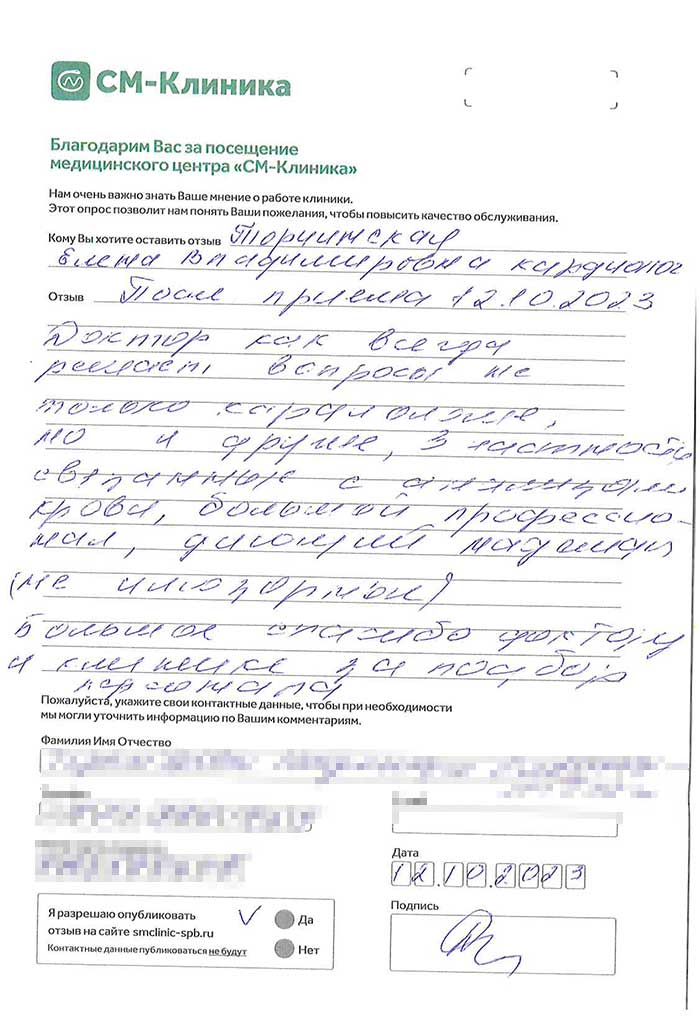 СМ-Клиника
Благодарим Вас за посещение
медицинского центра «СМ-Клиника»
Нам очень важно знать Ваше мнение о работе клиники.
Этот опрос позволит нам понять Ваши пожелания, чтобы повысить качество обслуживания.
Кому Вы хотите оставить отзыв
Елена Владимировна кардиолог
Отзыв После приема 12.10.2023
Доктор как всегда
решает вопросы не
только кардиологии,
но и другие, в частности
связанные с анализами
крови, большой профессио-
нал, думающий
(не
Большое спасибо доктору
и клинике за подбор
персонала
Пожалуйста, укажите свои контактные данные, чтобы при необходимости
мы могли уточнить информацию по Вашим комментариям.
Фамилия Имя Отчество
Дата
12.10.2023
Я разрешаю опубликовать
отзыв на сайте smclinic-spb.ru
Контактные данные публиковаться не будут
Да
Нет
Подпись